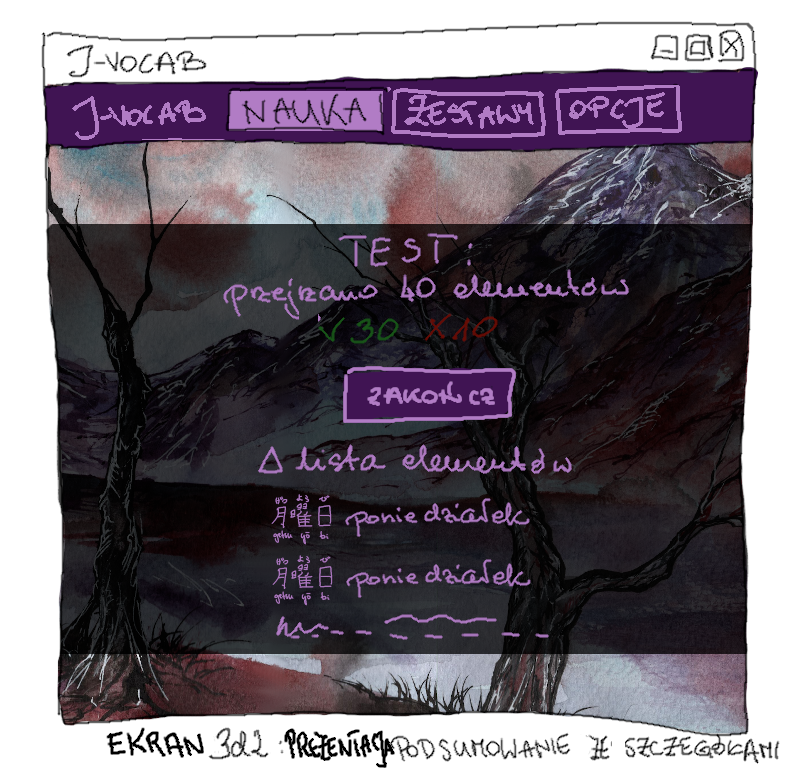 J-VOCAB
J-VOCAB NAUKA ZESTAWY OPCJE
TEST:
przejrzano 40 elementów
✓30 X10
ZAKOŃCZ
Δ lista elementów
げつ よう び
月曜日 poniedziałek
getsu yō bi
げつ よう び
月曜日 poniedziałek
getsu yō bi
EKRAN 3d2: PREZENTACJA PODSUMOWANIE ZE SZCZEGÓŁAMI